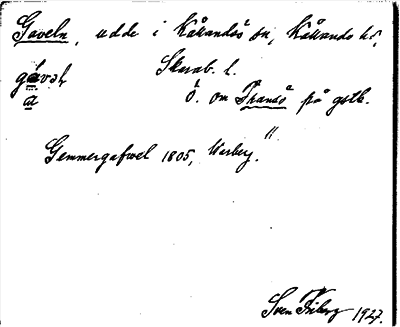 Gaveln, udde i Kållandsö sn, Kållands hd,
gavəl Skarab. l.
a Ö. om Fransö på gstk.
Gemmergafwel 1805, Warberg."
Sven Friberg 1927.